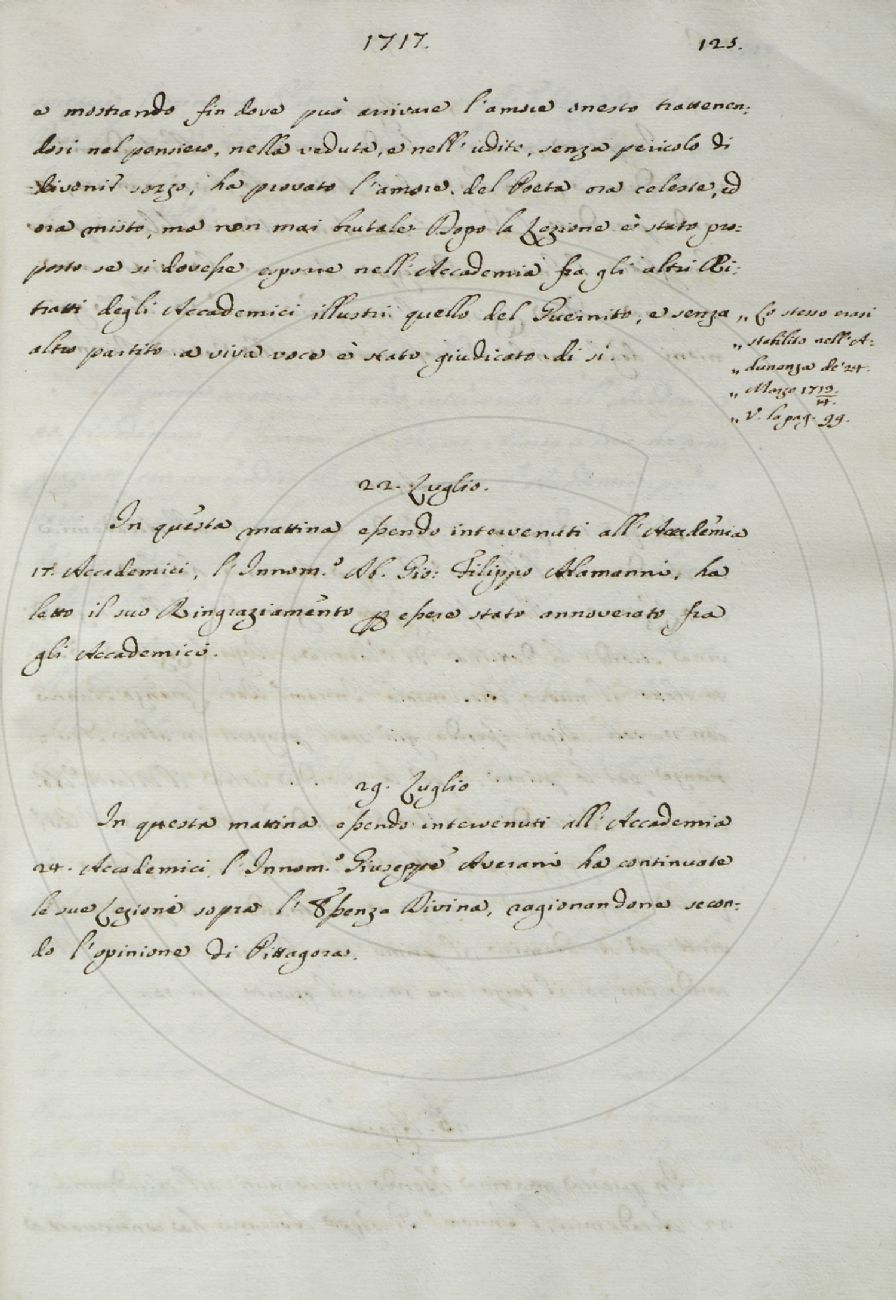 1717.
125.
e mostrando fin dove può arrivare l'amore onesto trattenen:
dosi nel pensiero, nella veduta, e nell'udito, senza pericolo di
divenir sozzo, ha provato l'amore del Poeta ora celeste, ed
ora misto, ma non mai brutale. Dopo la Lezione è stato pro:
posto se si dovesse esporre nell'Accademia fra gli altri Ri:
tratti degli Accademici illustri quello del Guernito, e senza
altro partito a viva voce è stato giudicato di sì.
„ Lo stesso erasi
„ stabilito nell'A:
„ dunanza de' 24.
„ Marzo 1713/14.
„ V. la pag. 99.
22. Luglio.
In questa mattina essendo intervenuti all'Accademia
17. Accademici, l'Innom.º Ab. Gio: Filippo Alamanni, ha
letto il suo Ringraziamento p essere stato annoverato fra
gli Accademici.
29. Luglio
In questa mattina essendo intervenuti all'Accademia
24. Accademici, l'Innom.º Giuseppe Averani ha continuate
le sue Lezioni sopra l'Essenza Divina, ragionandone secon:
do l'opinione di Pittagora.